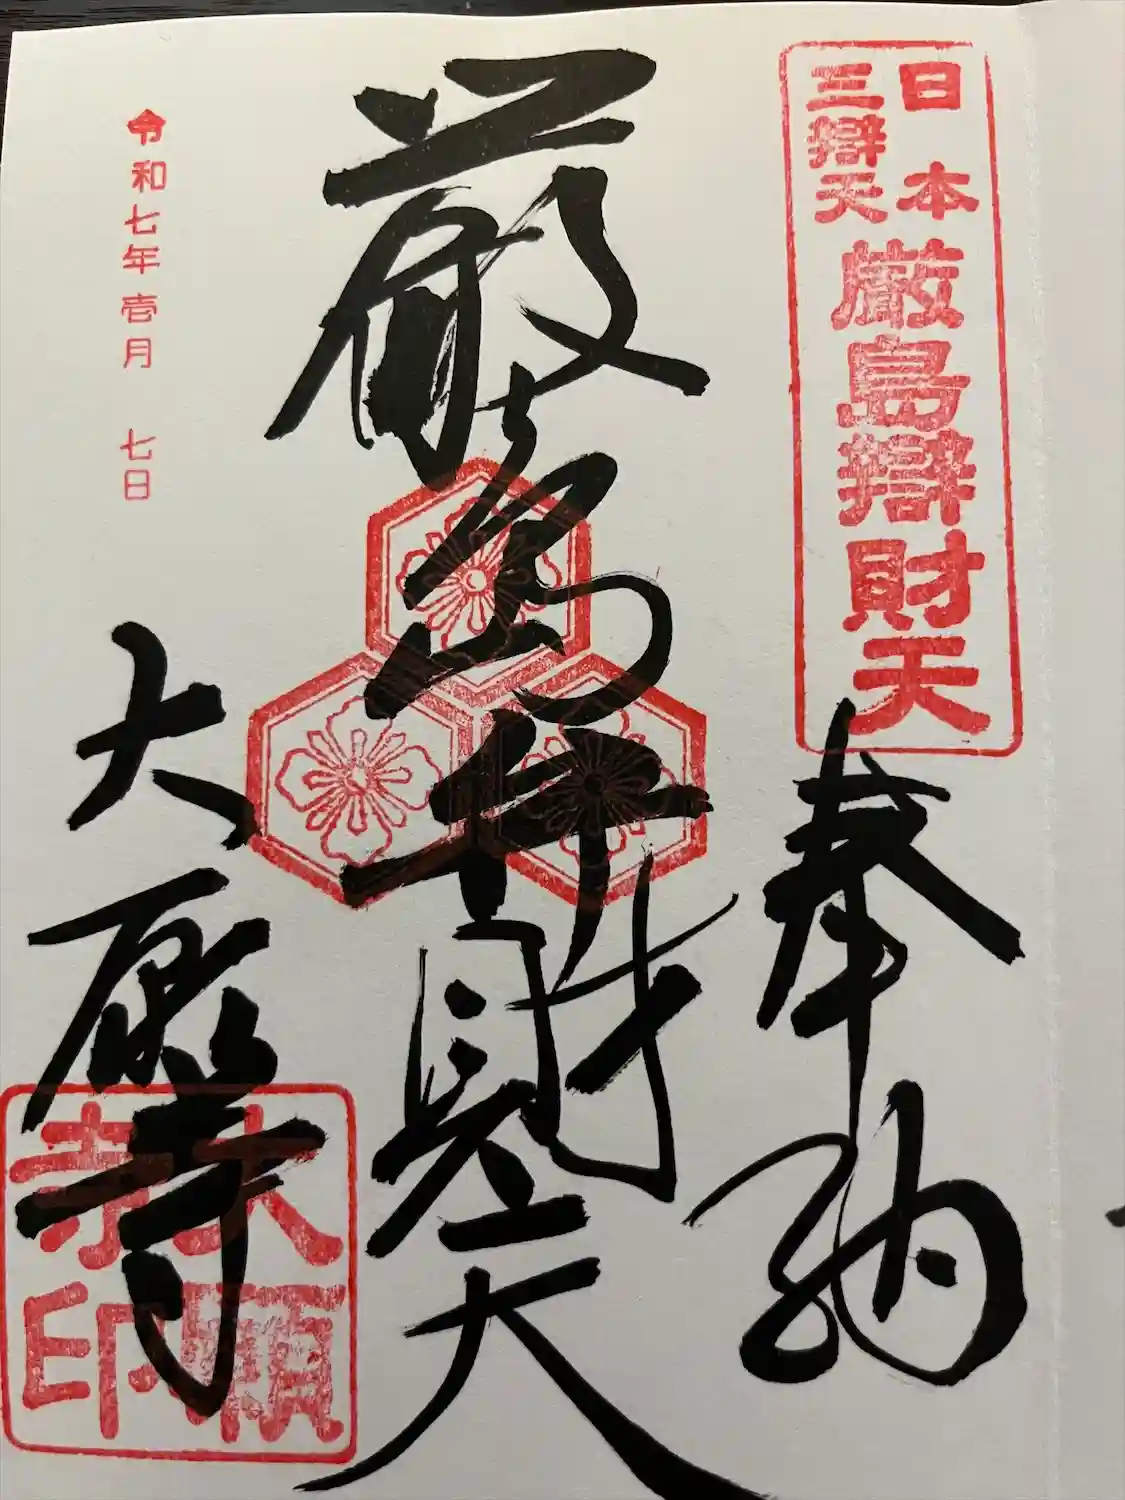 日本
三辯天
厳島辯財天
奉納
厳島弁財天
大願寺
令和七年壱月 七日
大願
寺印